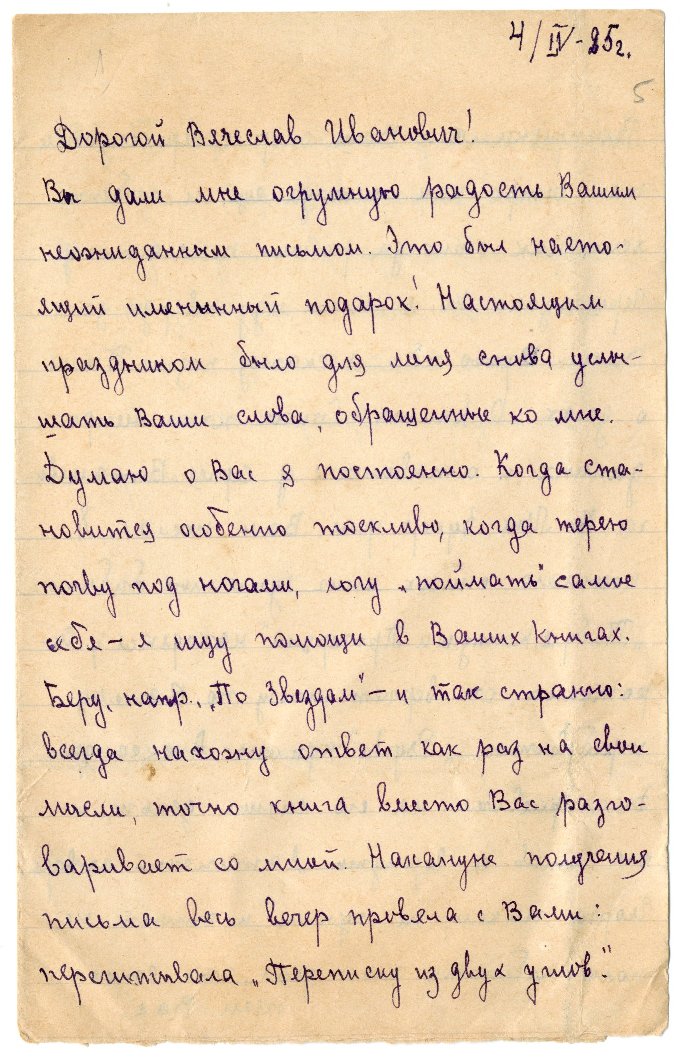 4/IV-25г.
5
Дорогой Вячеслав Иванович!
Вы дали мне огрумную радость Вашим
неожиданным письмом. Это был насто-
ящий именинный подарок! Настоящим
праздником было для меня снова услы-
шать Ваши слова, обращенные ко мне.
Думаю о Вас я постоянно. Когда ста-
новится особенно тоскливо, когда теряю
почву под ногами, могу „поймать" самое
себя – я ищу помощи в Ваших книгах.
Беру, напр., „По Звездам" – и так странно:
всегда нахожу ответ как раз на свои
мысли, точно книга вместо Вас разго-
варивает со мной. Накануне получения
письма весь вечер провела с Вами:
перечитывала „Переписку из двух углов".